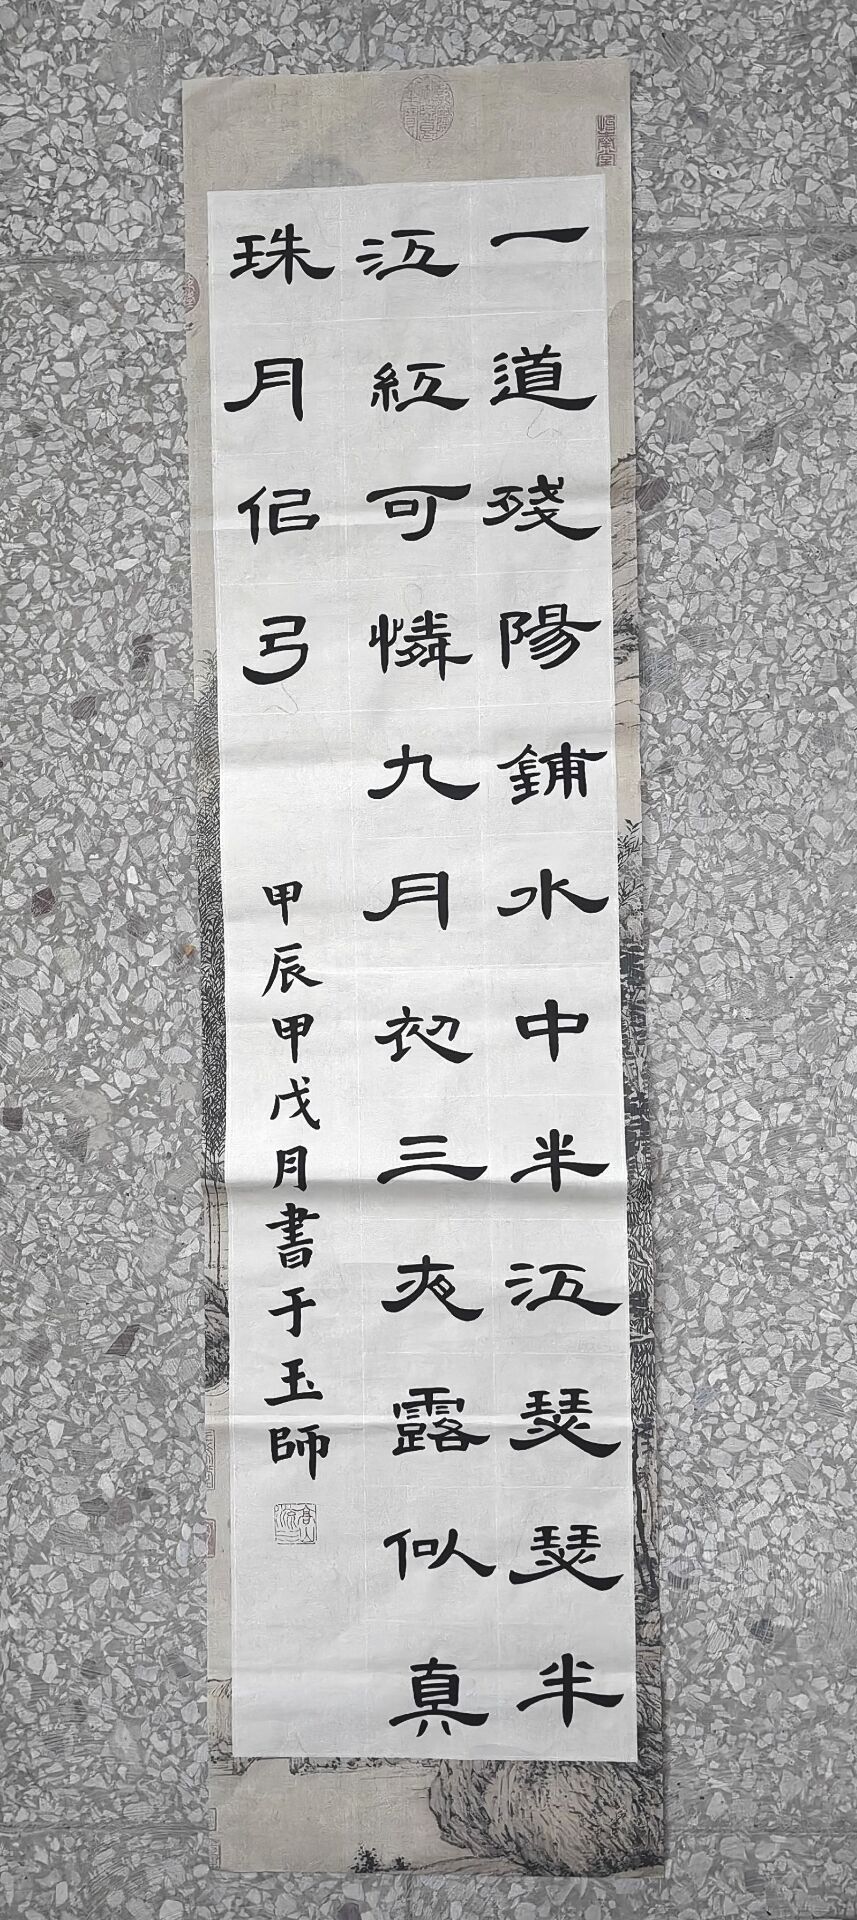 一道殘陽鋪水中半江瑟瑟半
江紅可憐九月初三夜露似真
珠月佀弓
甲辰甲戊月書于玉師
高山流